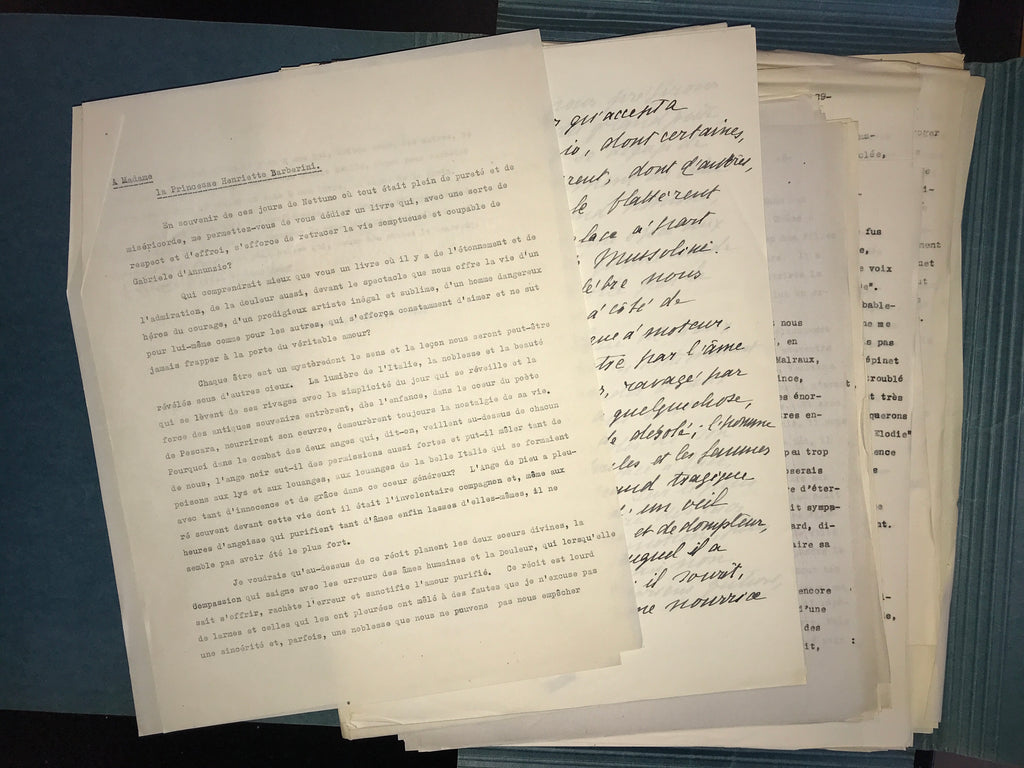 A Madame
la Princesse Henriette Barberini.
En souvenir de ces jours de Nettuno où tout était plein de pureté et de
miséricorde, me permettez-vous de vous dédier un livre qui, avec une sorte de
respect et d'effroi, s'efforce de retracer la vie somptueuse et coupable de
Gabriele d'Annunzio?
Qui comprendrait mieux que vous un livre où il y a de l'étonnement et de
l'admiration, de la douleur aussi, devant le spectacle que nous offre la vie d'un
héros du courage, d'un prodigieux artiste inégal et sublime, d'un homme dangereux
pour lui-même comme pour les autres, qui s'efforça constamment d'aimer et ne sut
jamais frapper à la porte du véritable amour?
Chaque être est un mystèredont le sens et la leçon nous seront peut-être
révélés sous d'autres cieux. La lumière de l'Italie, la noblesse et la beauté
qui se lèvent de ses rivages avec la simplicité du jour qui se réveille et la
force des antiques souvenirs entrèrent, dès l'enfance, dans le coeur du poète
de Pescara, nourrirent son oeuvre, demeurèrent toujours la nostalgie de sa vie.
Pourquoi dans le combat des deux anges qui, dit-on, veillent au-dessus de chacun
de nous, l'ange noir eut-il des permissions aussi fortes et put-il mêler tant de
poisons aux lys et aux louanges, aux louanges de la belle Italie qui se formaient
avec tant d'innocence et de grâce dans ce coeur généreux? L'Ange de Dieu a pleu-
ré souvent devant cette vie dont il était l'involontaire compagnon et, même aux
heures d'angoisse qui purifient tant d'âmes enfin lasses d'elles-mêmes, il ne
semble pas avoir été le plus fort.
Je voudrais qu'au-dessus de ce récit planent les deux soeurs divines, la
Compassion qui saigne avec les erreurs des âmes humaines et la Douleur, qui lorsqu'elle
sait s'offrir, rachète l'erreur et sanctifie l'amour purifié. Ce récit est lourd
de larmes et celles qui les ont pleurées ont mêlé à des fautes que je n'excuse pas
une sincérité et, parfois, une noblesse que nous ne pouvons pas nous empêcher
qu'accepta
io, dont certaines,
rent, dont d'autres,
le flattèrent
place à part
Mussolini.
lèbre nous
à côté de
que à moteur,
tré par l'âme
, ravagé par
quelque chose,
désolé; l'homme
les et les femmes
and tragique
un oeil
et de dompteur,
uquel il a
il sourit,
me nourrice
79-
nous
, en
Malraux,
ince,
es énor-
res en-
peu trop
oserais
e d'éter-
it sympa-
ard, di-
aire sa
encore
d'une
des
it,
olée,
fus
e,
voix
e".
bable-
ne me
s pas
épinet
troublé
t très
querons
Elodie"
ence
e
nt.